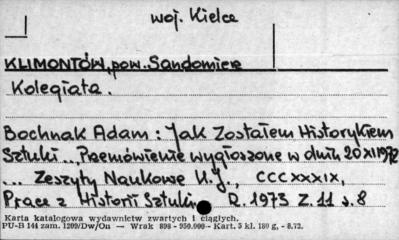 woj. Kielce
KLIMONTÓW, pow. Sandomierz
Kolegiata.
Bochnak Adam: Jak Zostałem Historykiem
Sztuki... Przemówienie wygłoszone w dniu 20 XII 1972
... Zeszyty Naukowe U.J., CCCXXXIX,
Prace z Historii Sztuki, R. 1973 Z. 11 s. 8
Karta katalogowa wydawnictw zwartych i ciągłych.
PU-B 144 zam. 1209/Dw/On — Wrak 898 - 950.000 - Kart. 5 kl. 180 g, - 8.72.